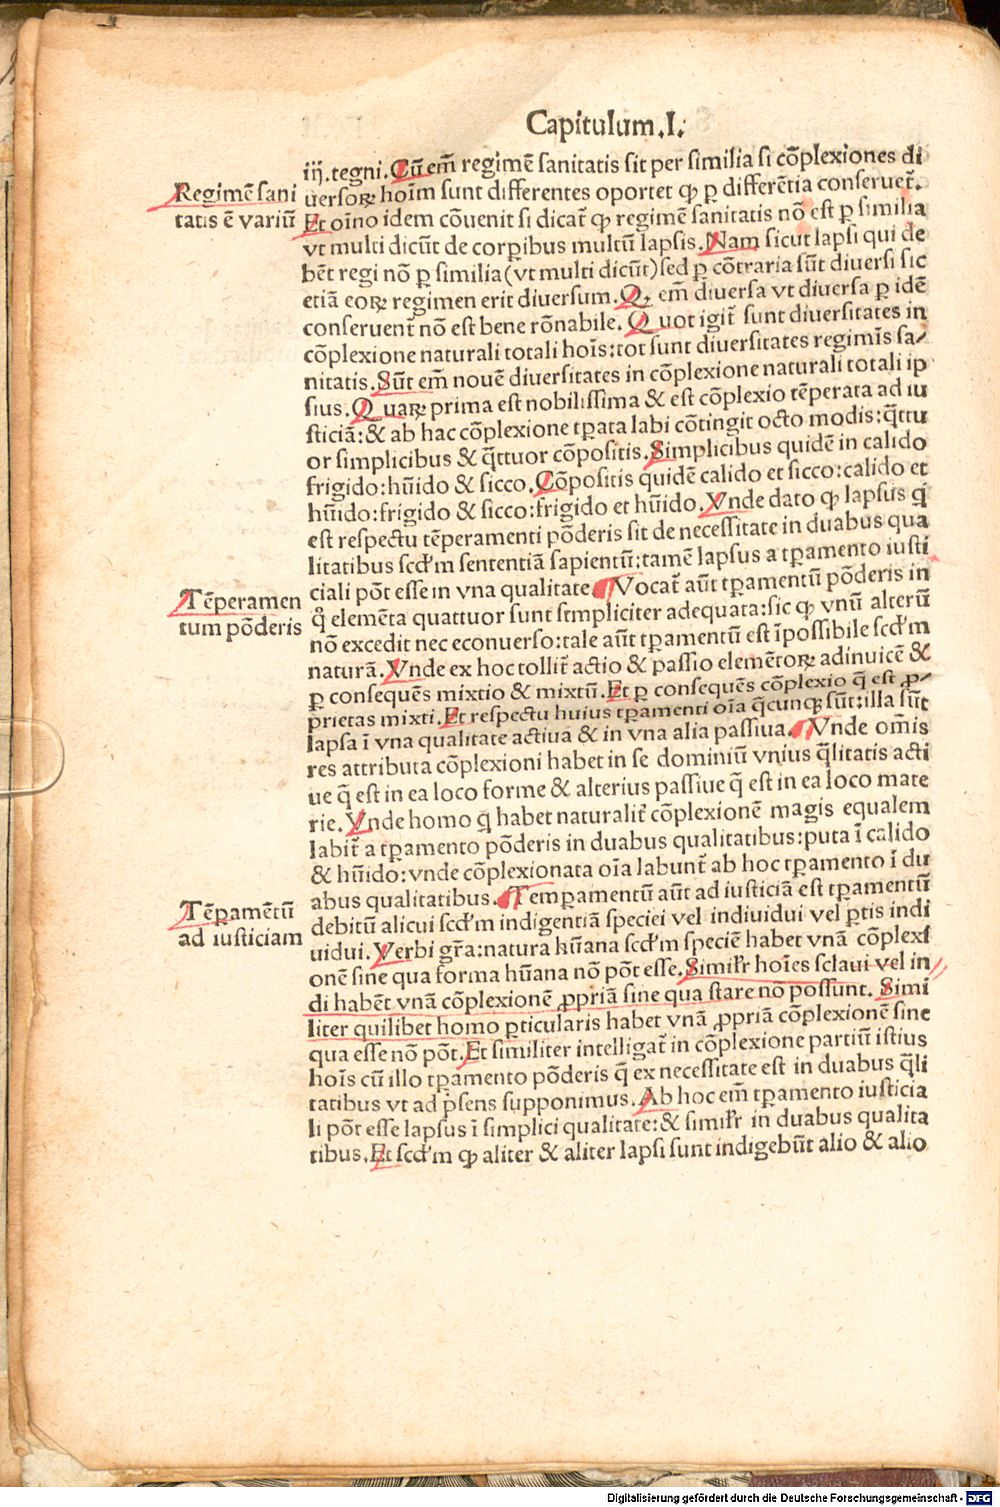 Capitulum.I.
iij.tegni.Cū em̄ regimē sanitatis sit per similia si cōplexiones di
Regimē sani
tatis ē variū
uersoꝝ hoīm sunt differentes oportet ꝙ ꝑ differētia conseruet᷑.
Et oīno idem cōuenit si dicat᷑ ꝙ regimē sanitatis nō est ꝑ similia
vt multi dicūt de corꝑibus multū lapsis.Nam sicut lapsi qui de
bēt regi nō ꝑ similia(vt multi dicūt)sed ꝑ cōtraria sūt diuersi sic
etiā eoꝝ regimen erit diuersum.Q, em̄ diuersa vt diuersa ꝑ idē
conseruent᷑ nō est bene rōnabile.Quot igit᷑ sunt diuersitates in
cōplexione naturali totali hoīs:tot sunt diuersitates regimīs sa/
nitatis.Sūt em̄ nouē diuersitates in cōplexione naturali totali ip
sius.Quaꝝ prima est nobilissima & est cōplexio tēperata ad iu
sticiā:& ab hac cōplexione tꝑata labi cōtingit octo modis:q̄ttu
or simplicibus & q̄ttuor cōpositis.Simplicibus quidē in calido
frigido:hūido & sicco.Cōpositis quidē calido et sicco:calido et
hūido:frigido & sicco:frigido et hūido.Vnde dato ꝙ lapsus q̇
est respectu tēperamenti pōderis sit de necessitate in duabus qua
litatibus scd'm sententiā sapientū:tamē lapsus a tꝑamento iusti
ciali pōt esse in vna qualitate ¶Vocat᷑ aūt tꝑamentū pōderis in
Tēperamen
tum pōderis
q̊ elemēta quattuor sunt stmpliciter adequata:sic ꝙ vnū alterū
nō excedit nec econuerso:tale aūt tꝑamentū est īpossibile scd'm
naturā.Vnde ex hoc tollit᷑ actio & passio elemētoꝝ adinuicē &
ꝑ consequēs mixtio & mixtū.Et ꝑ consequēs cōplexio q̄ est ꝓ/
prietas mixti.Et respectu huius tꝑamenti oīa q̄cunqꝫ sūt:illa sūt
lapsa ī vna qualitate actiua & in vna alia passiua.¶Vnde om̄is
res attributa cōplexioni habet in se dominiū vnius q̄litatis acti
ue q̄ est in ea loco forme & alterius passiue q̄ est in ea loco mate
rie.Vnde homo q̇ habet naturalit᷑ cōplexionē magis equalem
labit᷑ a tꝑamento pōderis in duabus qualitatibus:puta ī calido
& hūido:vnde cōplexionata oīa labunt᷑ ab hoc tꝑamento ī du
abus qualitatibus.¶Temꝑamentū aūt ad iusticiā est tꝑamentū
Tēꝑamētū
ad iusticiam
debitū alicui scd'm indigentiā speciei vel indiuidui vel ꝑtis indi
uidui.Verbi gr̄a:natura hūana scd'm speciē habet vnā cōplexi
onē sine qua forma hūana nō pōt esse.Simil'r hoīes sclaui vel in
di habēt vnā cōplexionē ꝓpriā sine qua stare nō possunt.Simi
liter quilibet homo ꝑticularis habet vnā ꝓpriā cōplexionē sine
qua esse nō pōt.Et similiter intelligat᷑ in cōplexione partiū istius
hoīs cū illo tꝑamento pōderis q̄ ex necessitate est in duabus q̄li
tatibus vt ad p̄sens supponimus.Ab hoc em̄ tꝑamento iusticia
li pōt esse lapsus ī simplici qualitate:& simil'r in duabus qualita
tibus.Et scd'm ꝙ aliter & aliter lapsi sunt indigebūt alio & alio
Digitalisierung gefördert durch die Deutsche Forschungsgemeinschaft - DFG